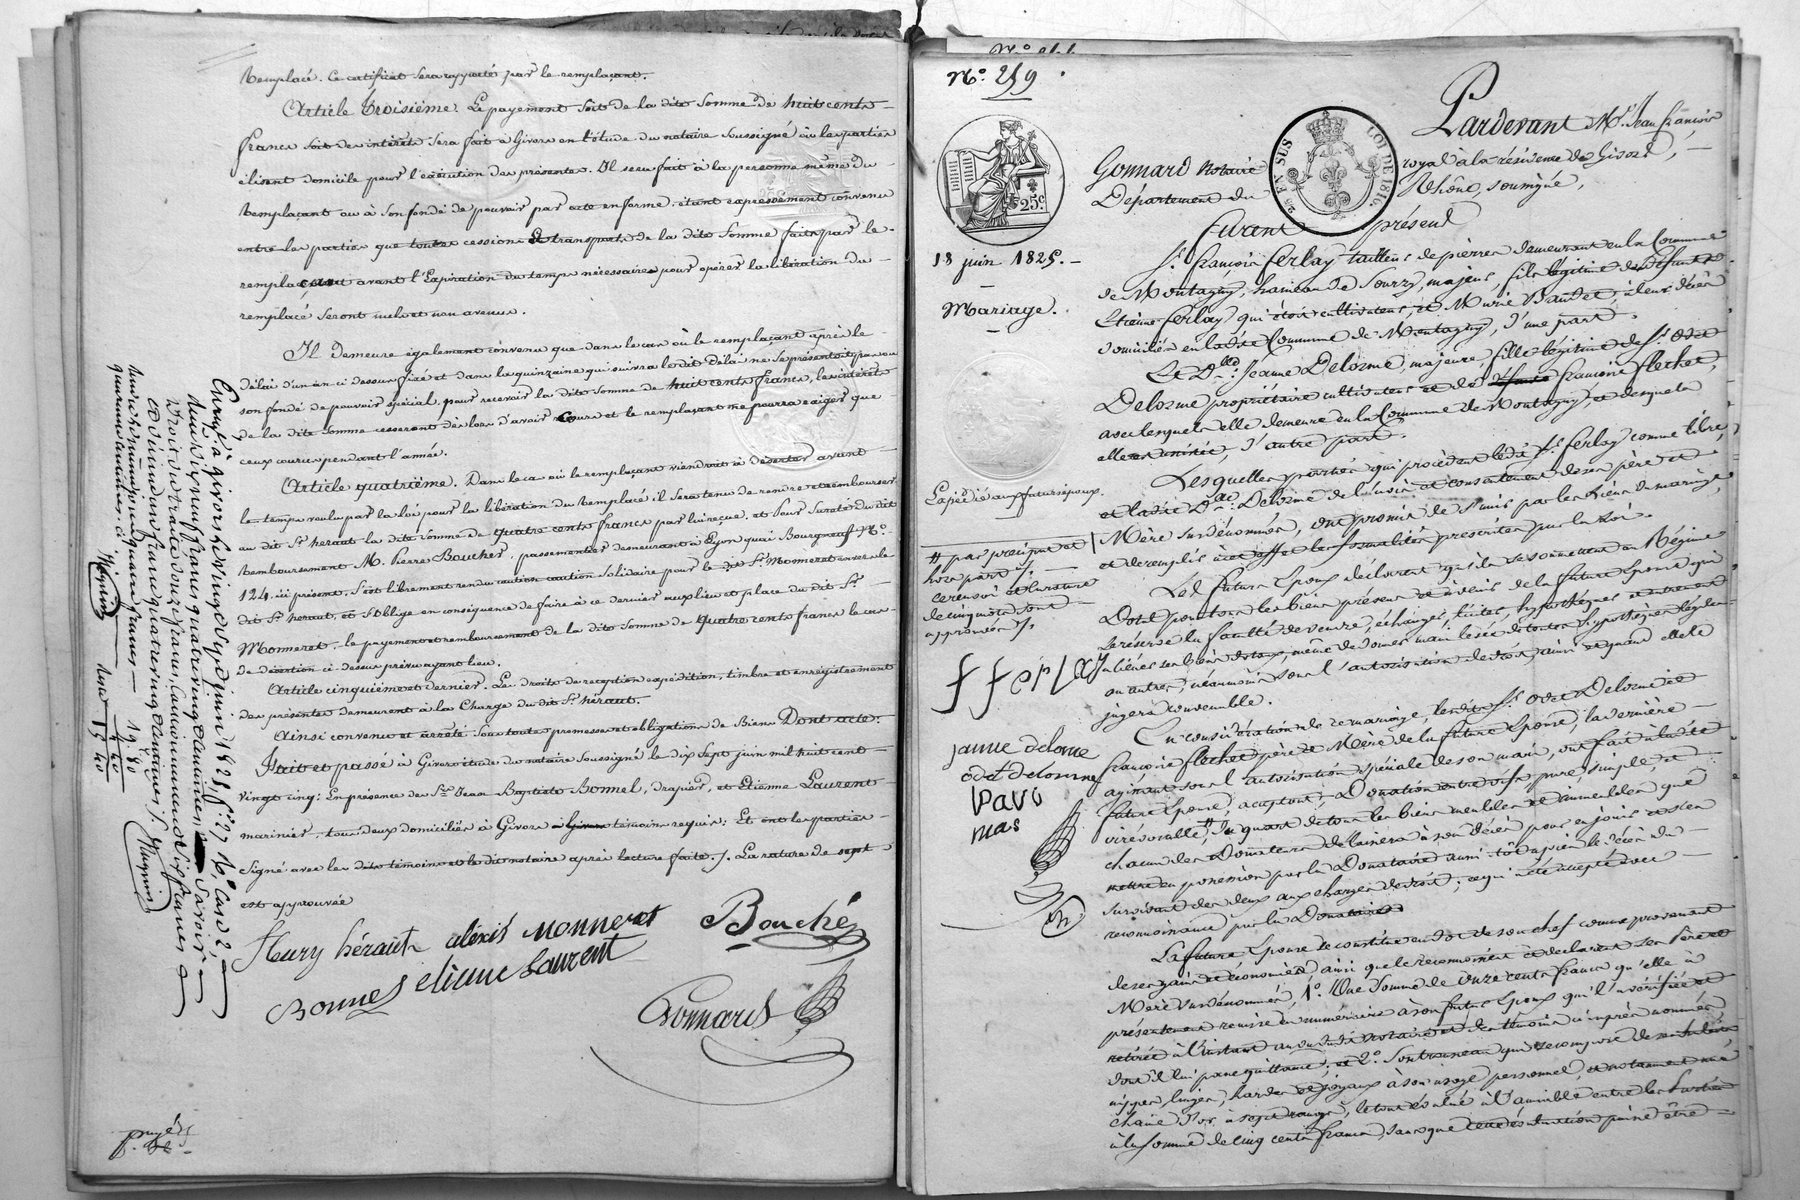 remplacé. Ce certificat sera rapporté par le remplaçant.
Article Troisième. Le payement soit de la dite somme de huit cents
francs soit des intérêts sera fait à Givors en l'étude du notaire soussigné où les parties
élisent domicile pour l'exécution des présentes. Il sera fait à la personne même du
remplaçant ou à son fondé de pouvoir par acte en forme; étant expressément convenu
entre les parties que toutes cessions et transports de la dite somme faits par le
remplaçant avant l'expiration du temps nécessaire pour opérer la libération du
remplacé seront nuls et non avenus.
Il demeure également convenu que dans le cas où le remplaçant après le
délai d'un an ci dessus fixé et dans la quinzaine qui suivra le dit délai ne se présenteroit pas ou
son fondé de pouvoir spécial, pour recevoir la dite somme de huit cents francs, les intérêts
de la dite somme cesseront dès lors d'avoir cours et le remplaçant ne pourra exiger que
ceux courus pendant l'année.
Article quatrième. Dans le cas où le remplaçant viendrait à déserter avant
le temps voulu par la loi pour la libération du remplacé, il sera tenu de rendre et rembourser
au dit Sr. héraut la dite somme de quatre cents francs par lui reçue, et pour sureté du dit
remboursement M. Pierre Boucher, passementier demeurant à Lyon quai Bourgneuf No.
124, ici présent, s'est librement rendu caution solidaire pour le dit Sr. Monnerat envers le
dit Sr. heraut, et s'oblige en conséquence de faire à ce dernier aux lieu et place du dit Sr.
Monnerat, le payement et remboursement de la dite somme de quatre cents francs le cas
de désertion ci dessus prévu ayant lieu.
Article cinquième et dernier. Les droits de réception expédition, timbre et enregistrement
des présentes demeurent à la charge du dit Sr. héraut.
Ainsi convenu et arrêté sous toutes promesses et obligations de Biens Dont acte.
Fait et passé à Givors étude du notaire soussigné le dix sept juin mil huit cent
vingt cinq: En présence des Srs. Jean Baptiste Bonnel, drapier, et Etienne Laurent
marinier, tous deux domiciliés à Givors témoins requis: Et ont les parties
signé avec les dits témoins et le dit notaire après lecture faite. /. La rature de sept
est approuvée
fleury héraut aléxis monnerat Bouché
Bonnel etienne Laurent
Gonnard
Enregt. à givors le vingt deux juin 1825, fo. 27 Vo. Case 2,
reçu dix neuf francs quatre vingt centimes, Savoir:
No. 259
25.c
EN SUS
LOI DE 1816
18 juin 1825.
Mariage.
Expédié aux futurs époux.
# par préciput et
hors part /.
ce renvoi et la rature
de cinq mots sont
approuvés /.
f ferlay
janne delorme
odet delorme
Pardevant Me. Jean françois
Gonnard Notaire royal à la résidence de Givors,
Département du Rhône, soussigné,
Furent présent
Sr. françois ferlay tailleur de pierres demeurant en la Commune
de Montagny, hameau de Sourzy, majeur, fils légitime des défunts
Etienne ferlay qui étoit cultivateur, et Marie Baudet, à leur décès
domiciliés en ladite Commune de Montagny, d'une part.
Et Dlle. Jeanne Delorme, majeure, fille légitime de Sr. Odet
Delorme propriétaire cultivateur et de françoise flechet,
avec lesquels elle demeure en la Commune de Montagny, et desquels
elle est assistée, d'autre part.
Lesquelles parties qui procèdent ledit Sr. ferlay comme libre,
et ladite Dlle. Delorme de l'avis et consentement de ses père et
Mère susdénommés, ont promis de s'unir par les liens du mariage
et de remplir à cet effet les formalités prescrites par la loi.
Les futurs époux déclarent qu'ils se soumettent au Régime
Dotal pour tous les biens présens et à venir de la future épouse qui
se réserve la faculté de vendre, échanger, liciter, hypothéquer et autrement
aliéner ses biens dotaux, même de donner main levée de toutes hypothèques légales
ou autres, néanmoins sous l'autorisation de droit, ainsi et quand elle le
jugera convenable.
En considération de ce mariage, ledit Sr. Odet Delorme et
françoise flechet père et Mère de la future épouse, la dernière
agissant sous l'autorisation spéciale de son mari, ont fait à ladite
future épouse, acceptant, Donation entre vifs pure, simple, et
irrévocable, # du quart de tous les biens meubles et immeubles que
chacun des Donateurs délaissera à son décès pour en jouir et s'en
mettre en possession par la Donataire aussi tôt après le décès du
survivant des deux aux charges de droit; ce qui a été accepté avec
reconnaissance par la Donataire
La future épouse se constitue en dot de son chef comme provenant
de ses gains et économies, ainsi que le reconnoissent et déclarent ses Père et
Mère susdénommés, 1o. Une somme de onze cents francs qu'elle a
présentement remise en numéraire à son futur époux qui l'a vérifiée et
retirée à l'instant au vu dudit notaire et des témoins ci après nommés
dont il lui passe quittance; et 2o. Son trousseau qui se compose de
nippes linges, hardes et joyaux à son usage personnel, et notamment une
chaine d'or, à sept rangs, le tout évalué à l'amiable entre les parties
à la somme de cinq cents francs, sans que cette désination puisse être